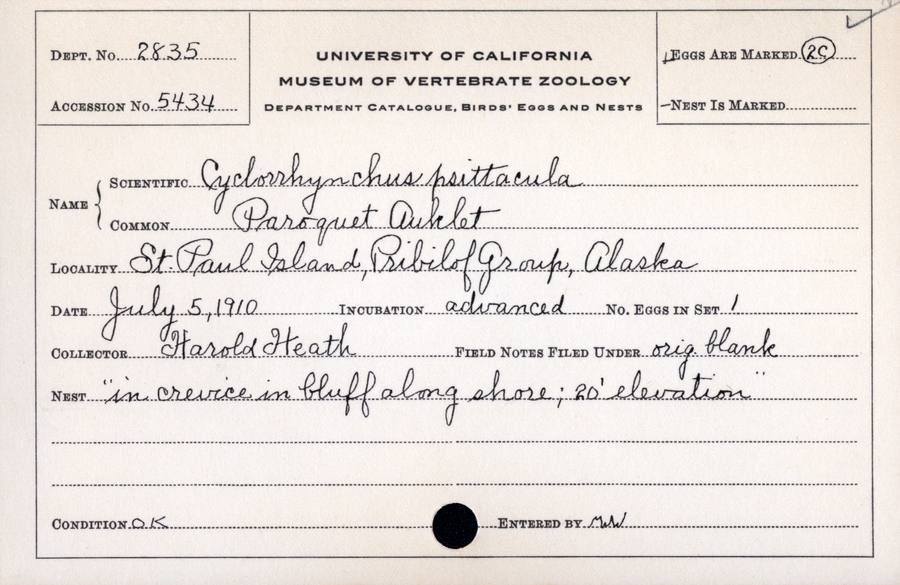 DEPT. No. 2835
ACCESSION No. 5434
UNIVERSITY OF CALIFORNIA
MUSEUM OF VERTEBRATE ZOOLOGY
DEPARTMENT CATALOGUE, BIRDS' EGGS AND NESTS
EGGS ARE MARKED
NEST IS MARKED
NAME
SCIENTIFIC Cyclorrhynchus psittacula
COMMON Paroquet Auklet
LOCALITY St. Paul Island, Pribilof Group, Alaska
DATE July 5, 1910 INCUBATION advanced No. EGGS IN SET 1
COLLECTOR Harold Heath FIELD NOTES FILED UNDER orig. blank
NEST "in crevice in bluff along shore; 20' elevation"
CONDITION OK ENTERED BY